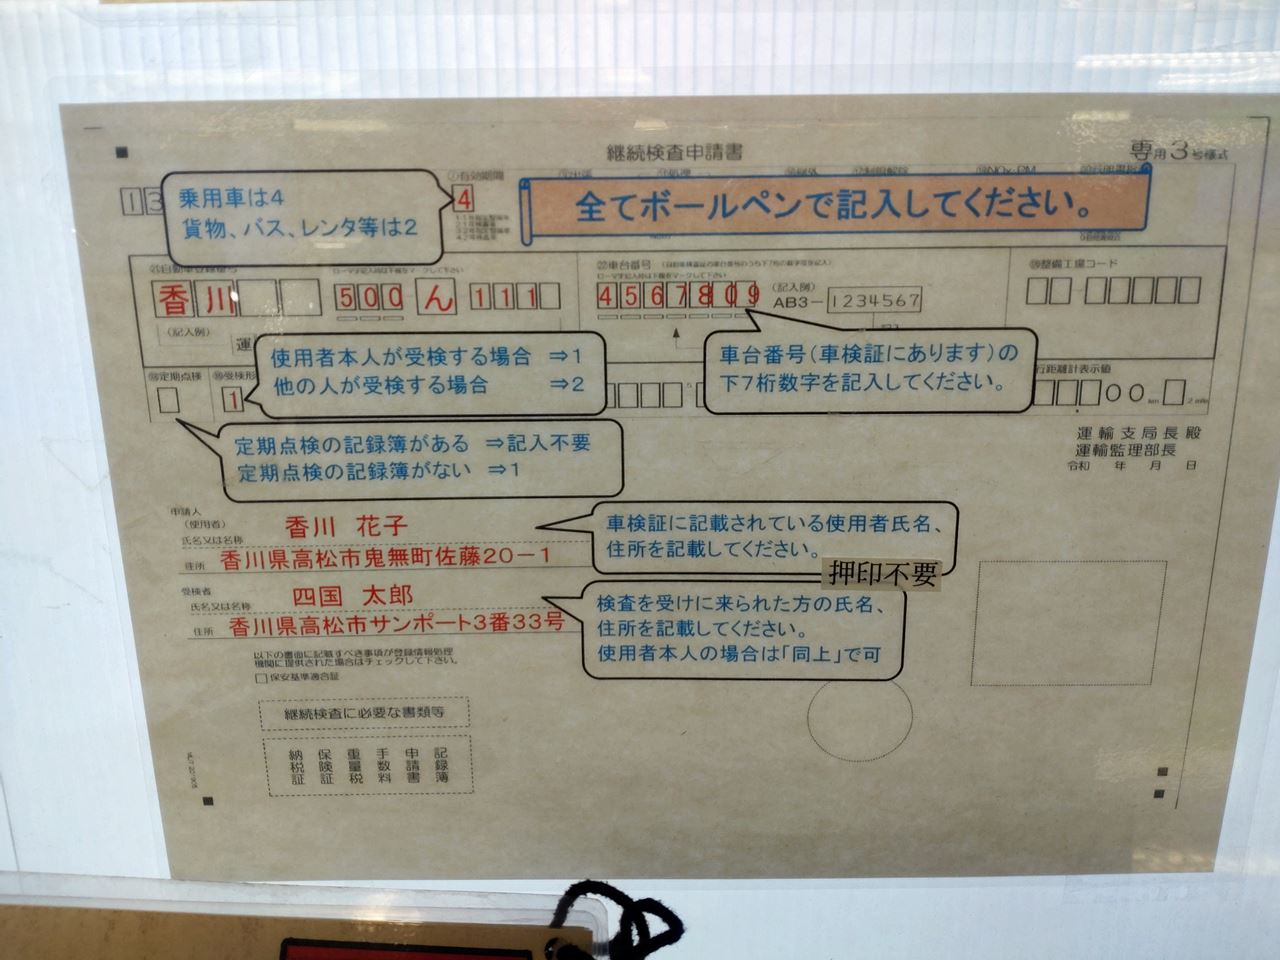 継続検査申請書
専用3号様式
13
乗用車は4
貨物、バス、レンタ等は2
有効期間
4
全てボールペンで記入してください。
自動車登録番号
香川 500 ん 111
(記入例)
運
車台番号
4567809
(記入例)
AB3-1234567
整備工場コード
使用者本人が受検する場合 ⇒1
他の人が受検する場合 ⇒2
車台番号(車検証にあります)の
下7桁数字を記入してください。
定期点検
受検形
1
行距離計表示値
00 km 2 mile
定期点検の記録簿がある ⇒記入不要
定期点検の記録簿がない ⇒1
運輸支局長殿
運輸監理部長
令和 年 月 日
申請人
(使用者)
氏名又は名称
香川 花子
住所 香川県高松市鬼無町佐藤20-1
車検証に記載されている使用者氏名、
住所を記載してください。
押印不要
受検者
氏名又は名称
四国 太郎
住所 香川県高松市サンポート3番33号
検査を受けに来られた方の氏名、
住所を記載してください。
使用者本人の場合は「同上」で可
以下の書面に記載すべき事項が登録情報処理
機関に提供された場合はチェックして下さい。
保安基準適合証
継続検査に必要な書類等
納税証
保険証
重量税
手数料
申請書
記録簿